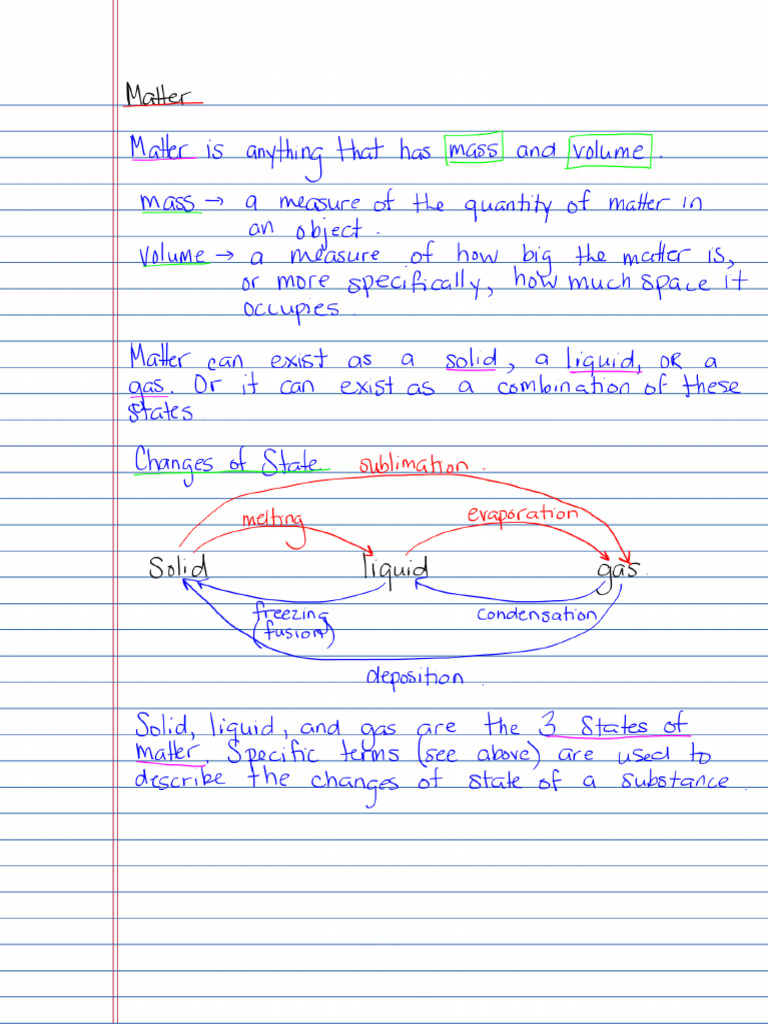 Matter
Matter is anything that has mass and volume.
mass → a measure of the quantity of matter in
an object.
volume → a measure of how big the matter is,
or more specifically, how much space it
occupies.
Matter can exist as a solid, a liquid, OR a
gas. Or it can exist as a combination of these
states
Changes of State sublimation.
melting evaporation
Solid liquid gas.
freezing condensation
(fusion)
deposition.
Solid, liquid, and gas are the 3 States of
matter. Specific terms (see above) are used to
describe the changes of state of a substance.